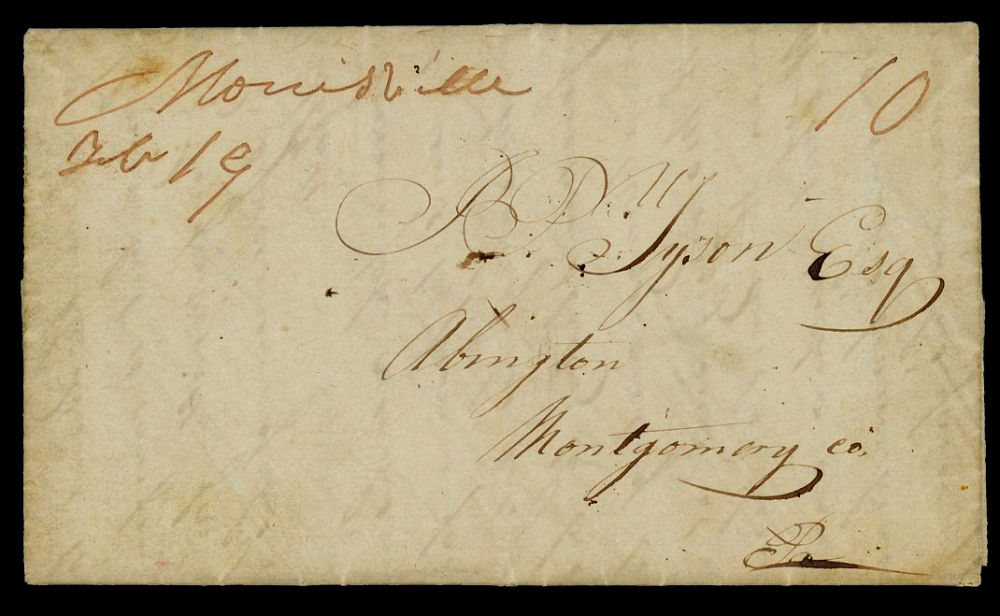 Morrisville
Feb 19
10
Tyson Esq
Abington
Montgomery co.
Pa